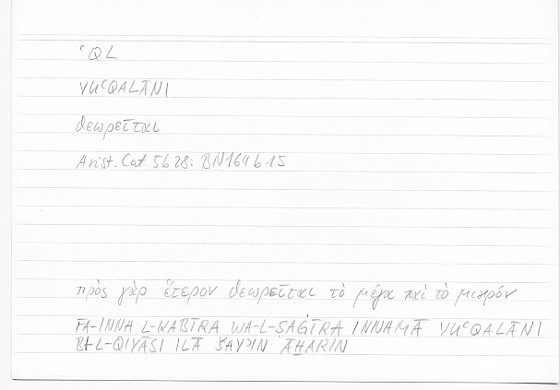 ʿQL
YUʿQALĀNI
θεωρεῖται
Arist. Cat. 5b28: BN164b15
πρὸς γὰρ ἕτερον θεωρεῖται τὸ μέγα καὶ τὸ μικρόν
FA-INNA L-KABĪRA WA-L-ṢAĠĪRA INNAMĀ YUʿQALĀNI
BI-L-QIYĀSI ILĀ ŠAYʾIN ĀḪARIN